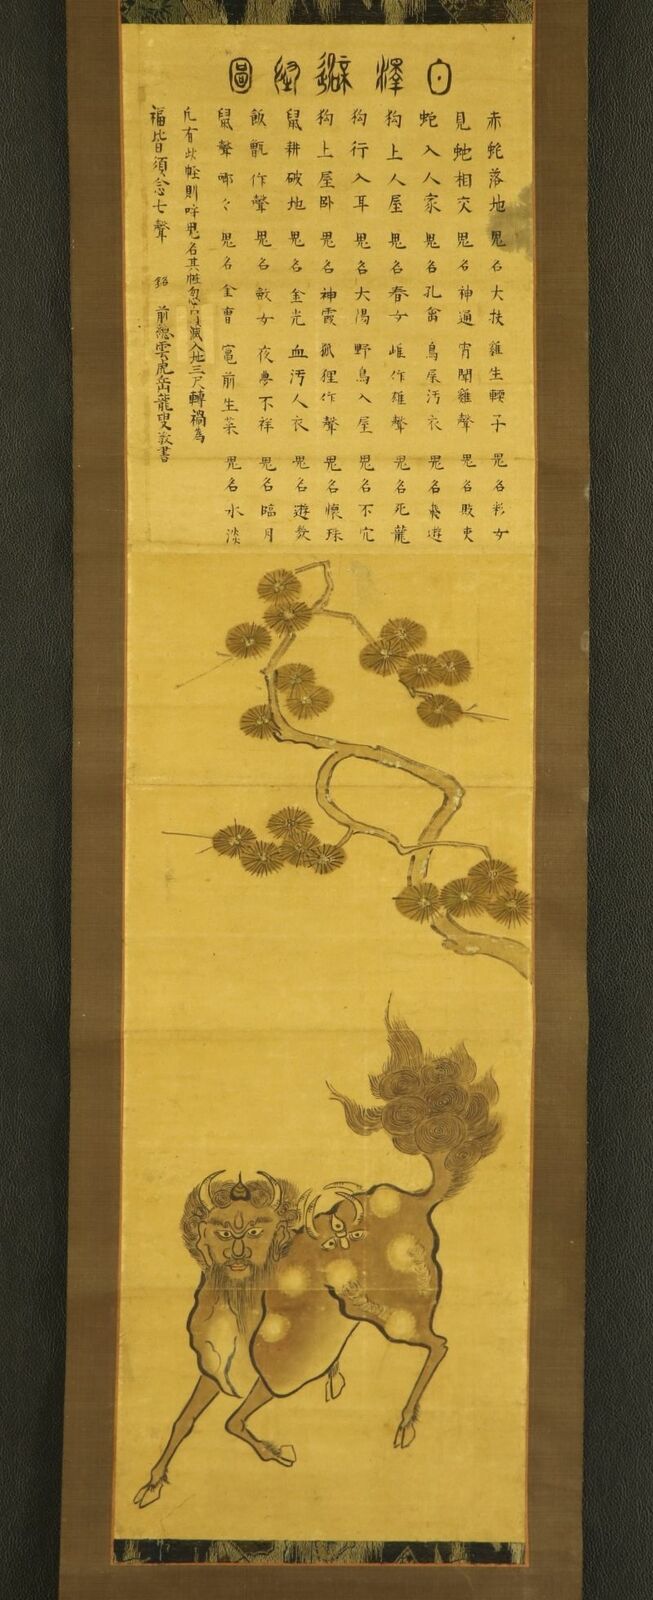 白澤避怪圖
赤蛇落地 鬼名大扶 雞生輭子 鬼名彩女
見蛇相交 鬼名神通 宵聞雞聲 鬼名敗吏
蛇入人家 鬼名孔翁 鳥屎汚衣 鬼名飛遊
狗上人屋 鬼名春女 雌作雄聲 鬼名死龍
狗行入耳 鬼名大陽 野鳥入屋 鬼名不穴
狗上屋臥 鬼名神霞 狐狸作聲 鬼名懷珠
鼠耕破地 鬼名金光 血汚人衣 鬼名遊
飯甑作聲 鬼名斂女 夜夢不祥 鬼名臨月
鼠聲啷々 鬼名全會 竈前生菜 鬼名水淡
凡有此恠則呼鬼名其恠忽自滅入地三尺轉禍為
福皆須念七聲 前總雲虎岳龍叟敬書